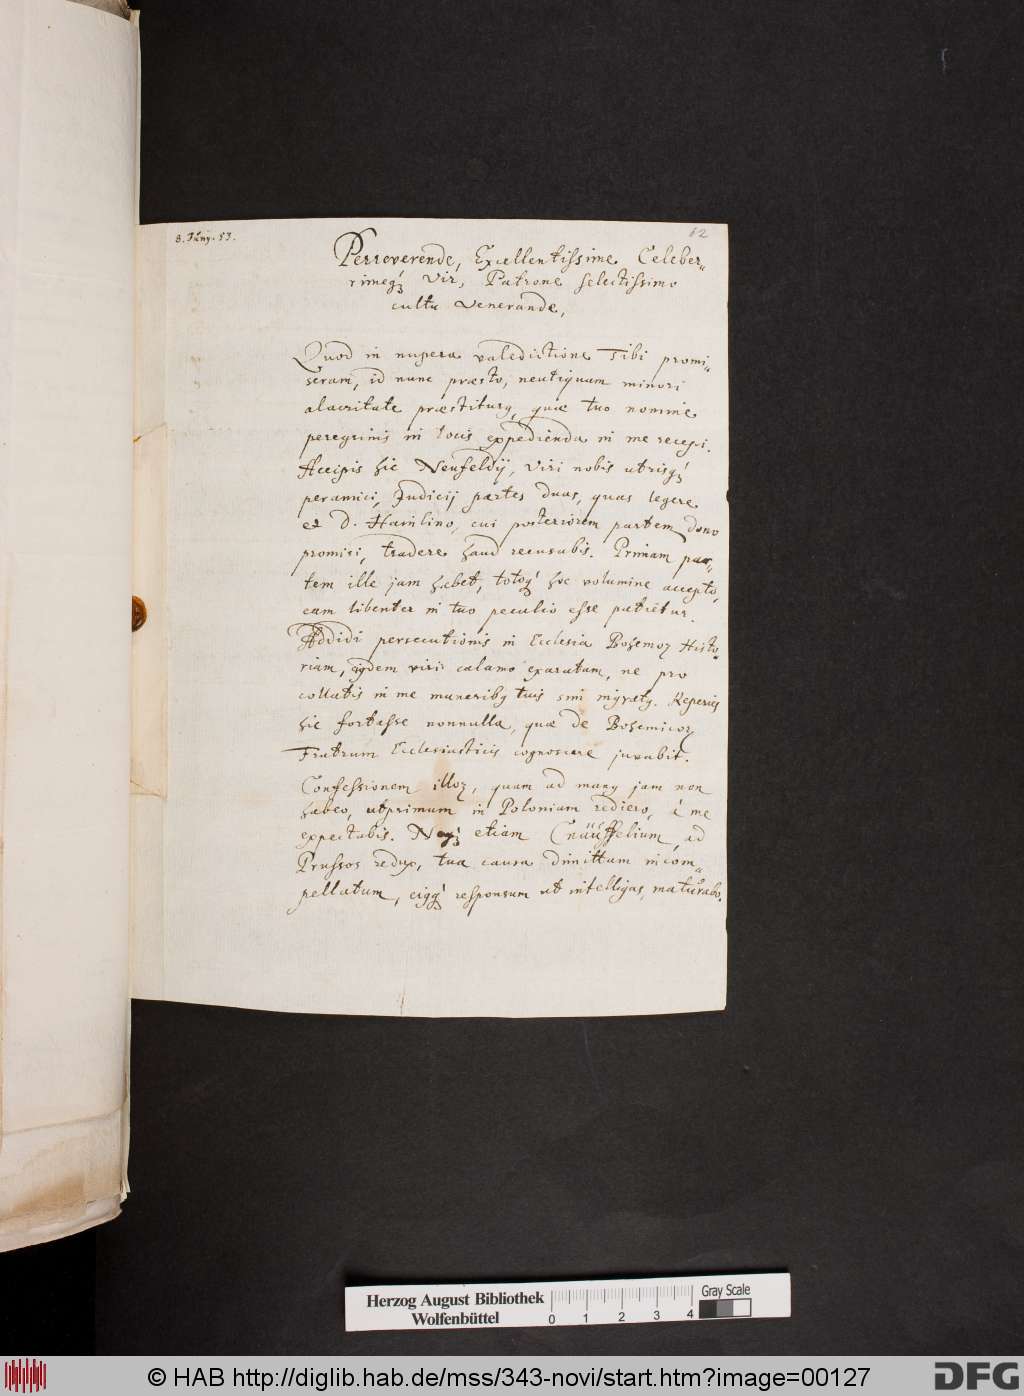 8. Juny. 53.
62
Perreverende, Excellentissime Celeber-
rimeq́; Vir, Patrone selectissimo
cultu Venerande,
Quod in nupera valedictione Tibi promi-
seram, id nunc præsto, neutiquam minori
alacritate præstiturꝰ, quæ tuo nomine
peregrinis in locis expedienda in me recepi.
Accipis hic Neufeldij, Viri nobis utrisq́;
peramici, Judicij partes duas, quas legere
et D. Hainlino, cui posteriorem partem dono
promisi, tradere haud recusabis. Primam par-
tem ille jam habet, totoq́; hoc volumine accepto,
eam libenter in tuo peculio esse patietur.
Addidi persecutionis in Ecclesia Bohemoꝝ Histo-
riam, ejꝰdem viri calamo exaratam, ne pro
collatis in me muneribꝰ tuis sim ingratꝰ. Reperies
hic fortasse nonnulla, quæ de Bohemicoꝝ
Fratrum Ecclesiasticis cognoscere juvabit.
Confessionem illoꝝ, quam ad manꝰ jam non
habeo, utprimum in Poloniam rediero, à me
expectabis. Neq́; etiam Cnüüffelium, ad
Prussos redux, tua causa dimittam incom-
pellatum, ejꝰq́; responsum ut intelligas, maturabo.
Herzog August Bibliothek
Wolfenbüttel
0 1 2 3 4
Gray Scale
© HAB http://diglib.hab.de/mss/343-novi/start.htm?image=00127
DFG